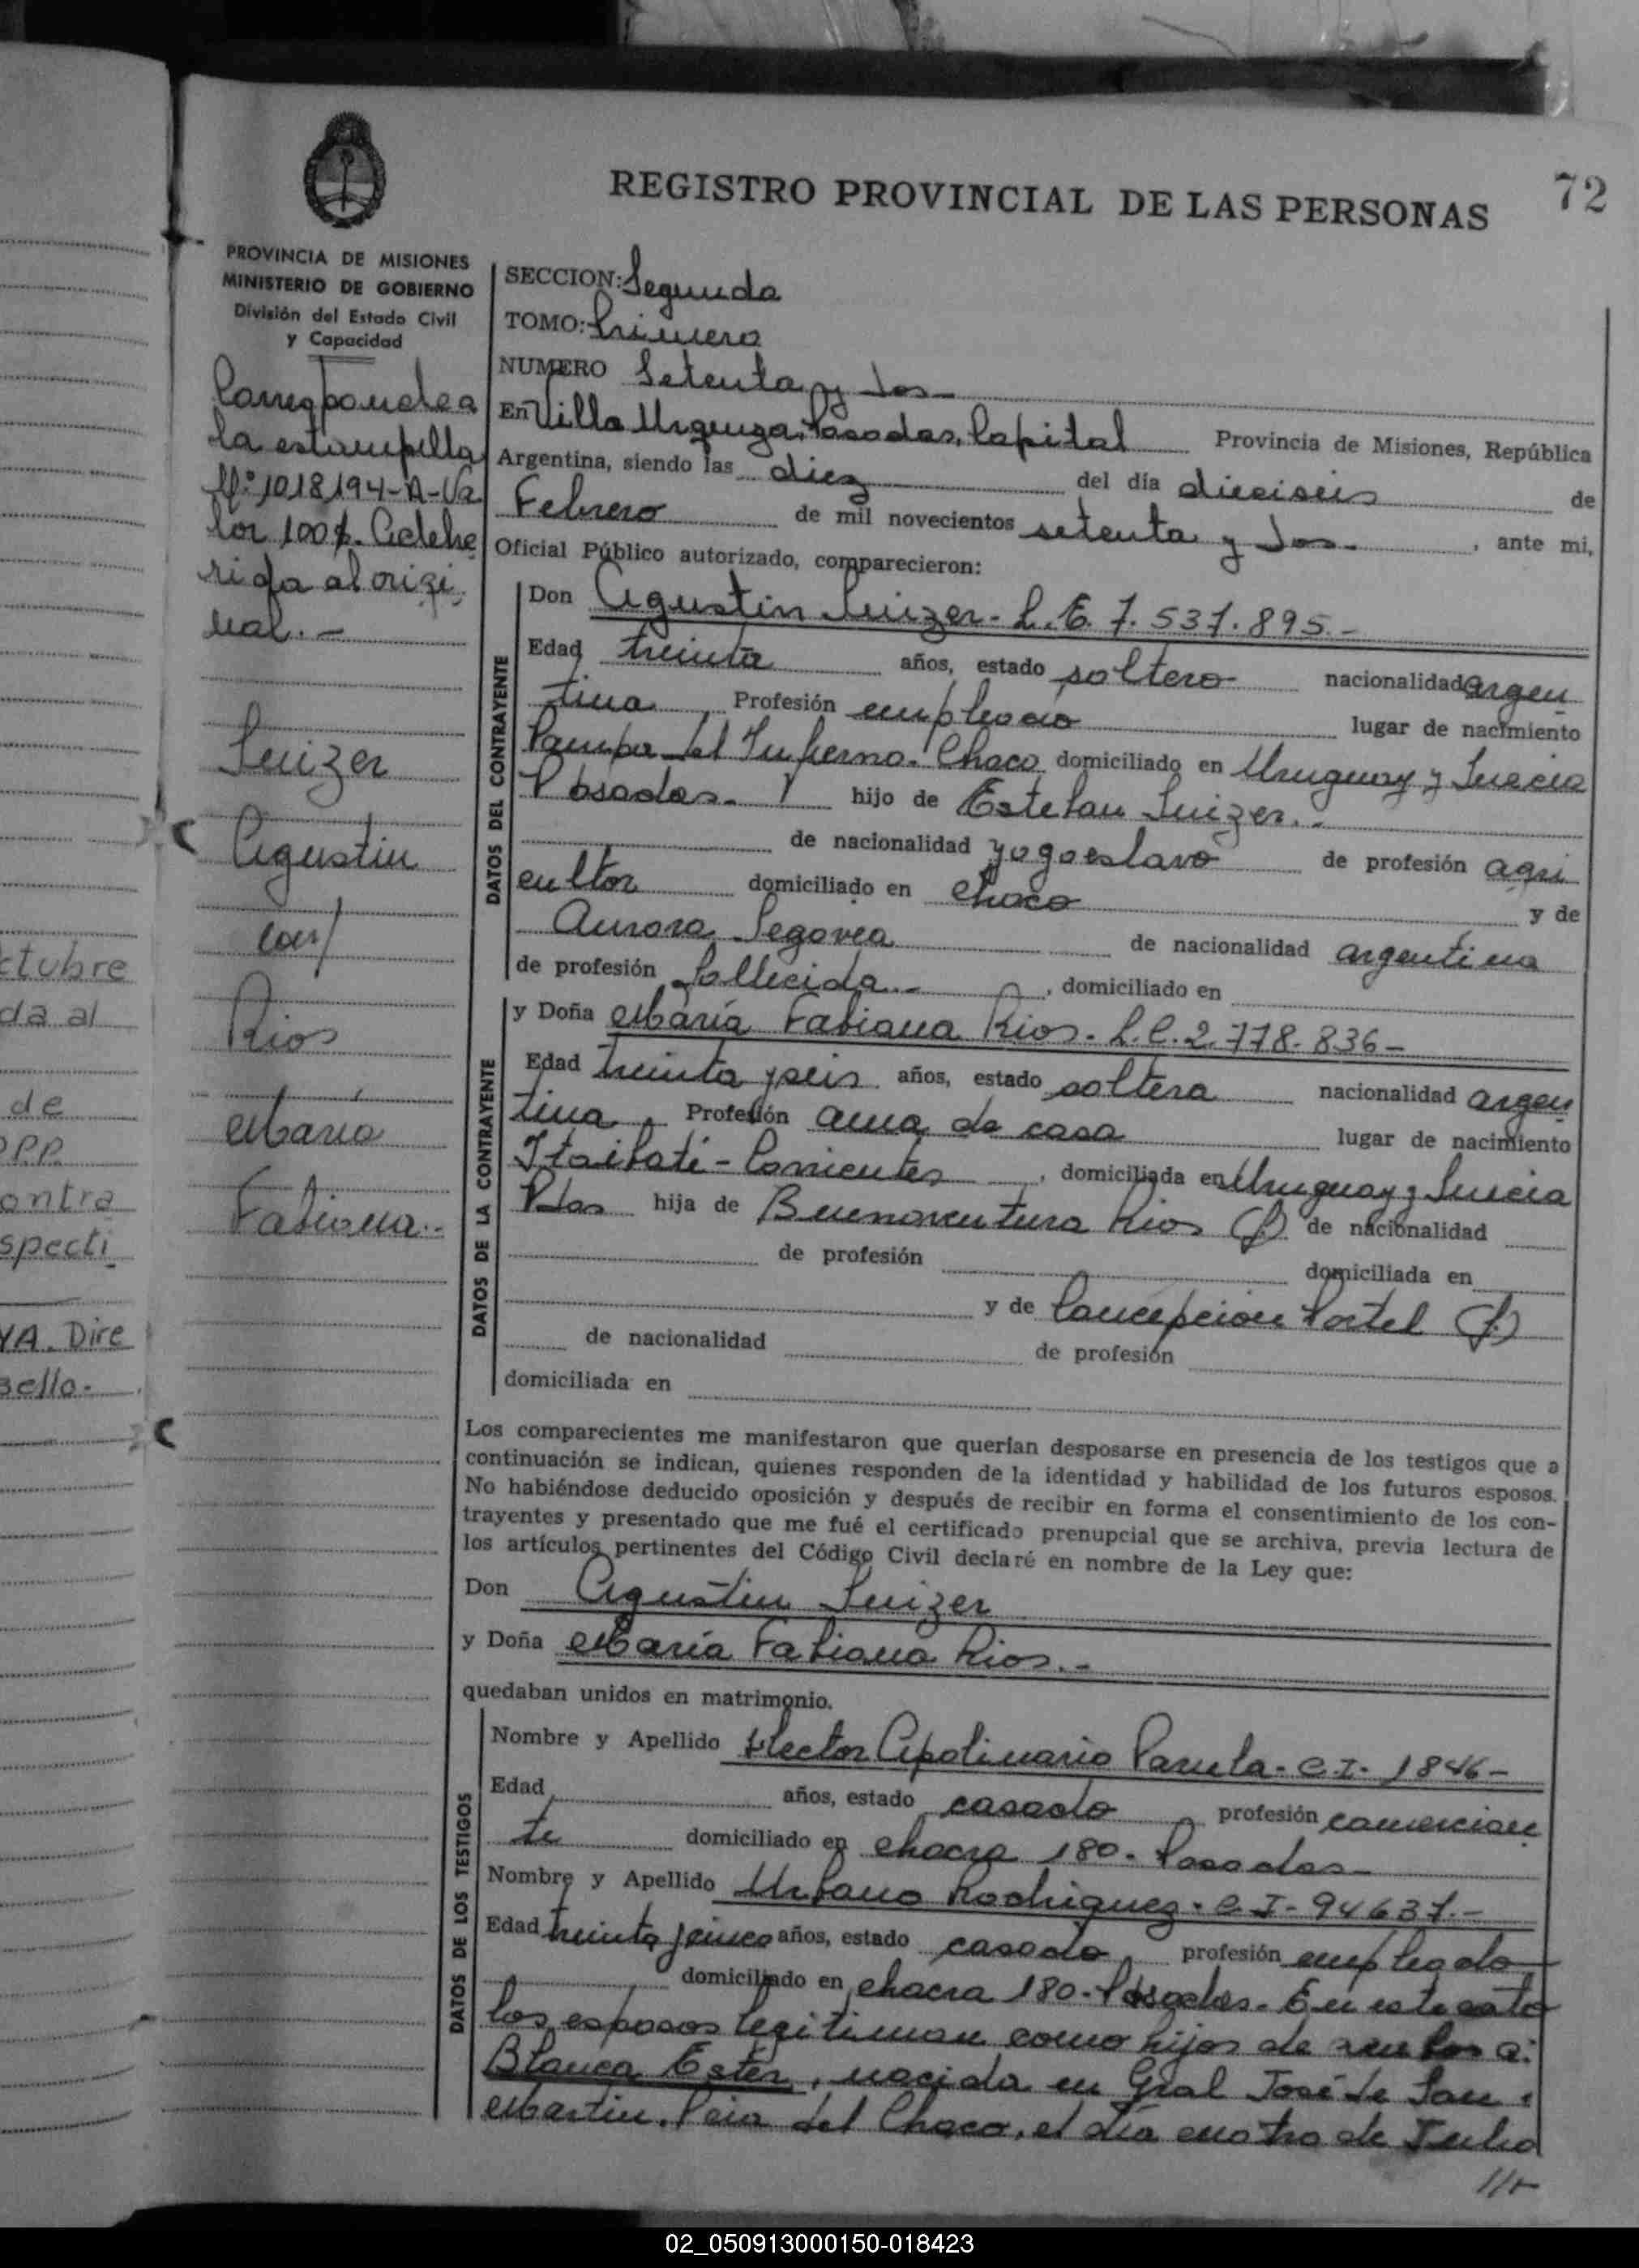 REGISTRO PROVINCIAL DE LAS PERSONAS
72
PROVINCIA DE MISIONES
MINISTERIO DE GOBIERNO
División del Estado Civil
y Capacidad
Corresponde a
la estampilla
Nº 1018194-A-Va
lor 100$. Adehe
rida al origi
nal.-
Suizer
Agustin
con/
Rios
María
Fabiana.-
ctubre
da al
de
PP.
ontra
specti
YA. Dire
sello.
SECCION: Segunda
TOMO: Primero
NUMERO Setenta y dos-
En Villa Urquiza, Posadas, Capital Provincia de Misiones, República
Argentina, siendo las diez del día dieciseis de
Febrero de mil novecientos setenta y dos-, ante mi,
Oficial Público autorizado, comparecieron:
DATOS DEL CONTRAYENTE
Don Agustin Suizer- L.E. 7.537.895.-
Edad treinta años, estado soltero nacionalidad argen
tina Profesión empleado lugar de nacimiento
Pampa del Infierno. Chaco domiciliado en Uruguay y Suecia
Posadas.- hijo de Esteban Suizer.-
de nacionalidad yugoeslavo de profesión agri
cultor domiciliado en Chaco y de
Aurora Segovia de nacionalidad argentina
de profesión fallecida.-, domiciliado en
DATOS DE LA CONTRAYENTE
y Doña María Fabiana Rios- L.C. 2.778.836-
Edad treinta y seis años, estado soltera nacionalidad argen
tina, Profesión ama de casa lugar de nacimiento
Itaibaté-Corrientes, domiciliada en Uruguay y Suecia
Pdas hija de Buenaventura Rios (f) de nacionalidad
de profesión domiciliada en
y de Concepcion Portel (f)
de nacionalidad de profesión
domiciliada en
Los comparecientes me manifestaron que querían desposarse en presencia de los testigos que a
continuación se indican, quienes responden de la identidad y habilidad de los futuros esposos.
No habiéndose deducido oposición y después de recibir en forma el consentimiento de los con-
trayentes y presentado que me fué el certificado prenupcial que se archiva, previa lectura de
los artículos pertinentes del Código Civil declaré en nombre de la Ley que:
Don Agustin Suizer
y Doña María Fabiana Rios.-
quedaban unidos en matrimonio.
DATOS DE LOS TESTIGOS
Nombre y Apellido Hector Apolinario C.I. 1846-
Edad años, estado casado, profesión comercian
te domiciliado en chacra 180- Posadas-
Nombre y Apellido Urbano Rodriguez- C.I- 94637.-
Edad treinta y cinco años, estado casado, profesión empleado
domiciliado en chacra 180- Posadas- En este acto
los esposos legitiman como hijos de ambos a:
Blanca Ester, nacida en Gral José de San
Martin. Pcia del Chaco, el día cuatro de Julio
02_050913000150-018423